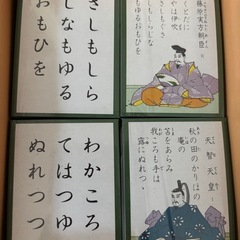 藤原実方朝臣
くとだに
やは伊吹
しもしらじな
るおもひを
さしもしら
しなもゆる
おもひを
天智天皇
秋の田のかりほの
庵の
苫をあらみ
我ころも手は
露にぬれつゝ
わかころ
てはつゆ
ぬれつつ